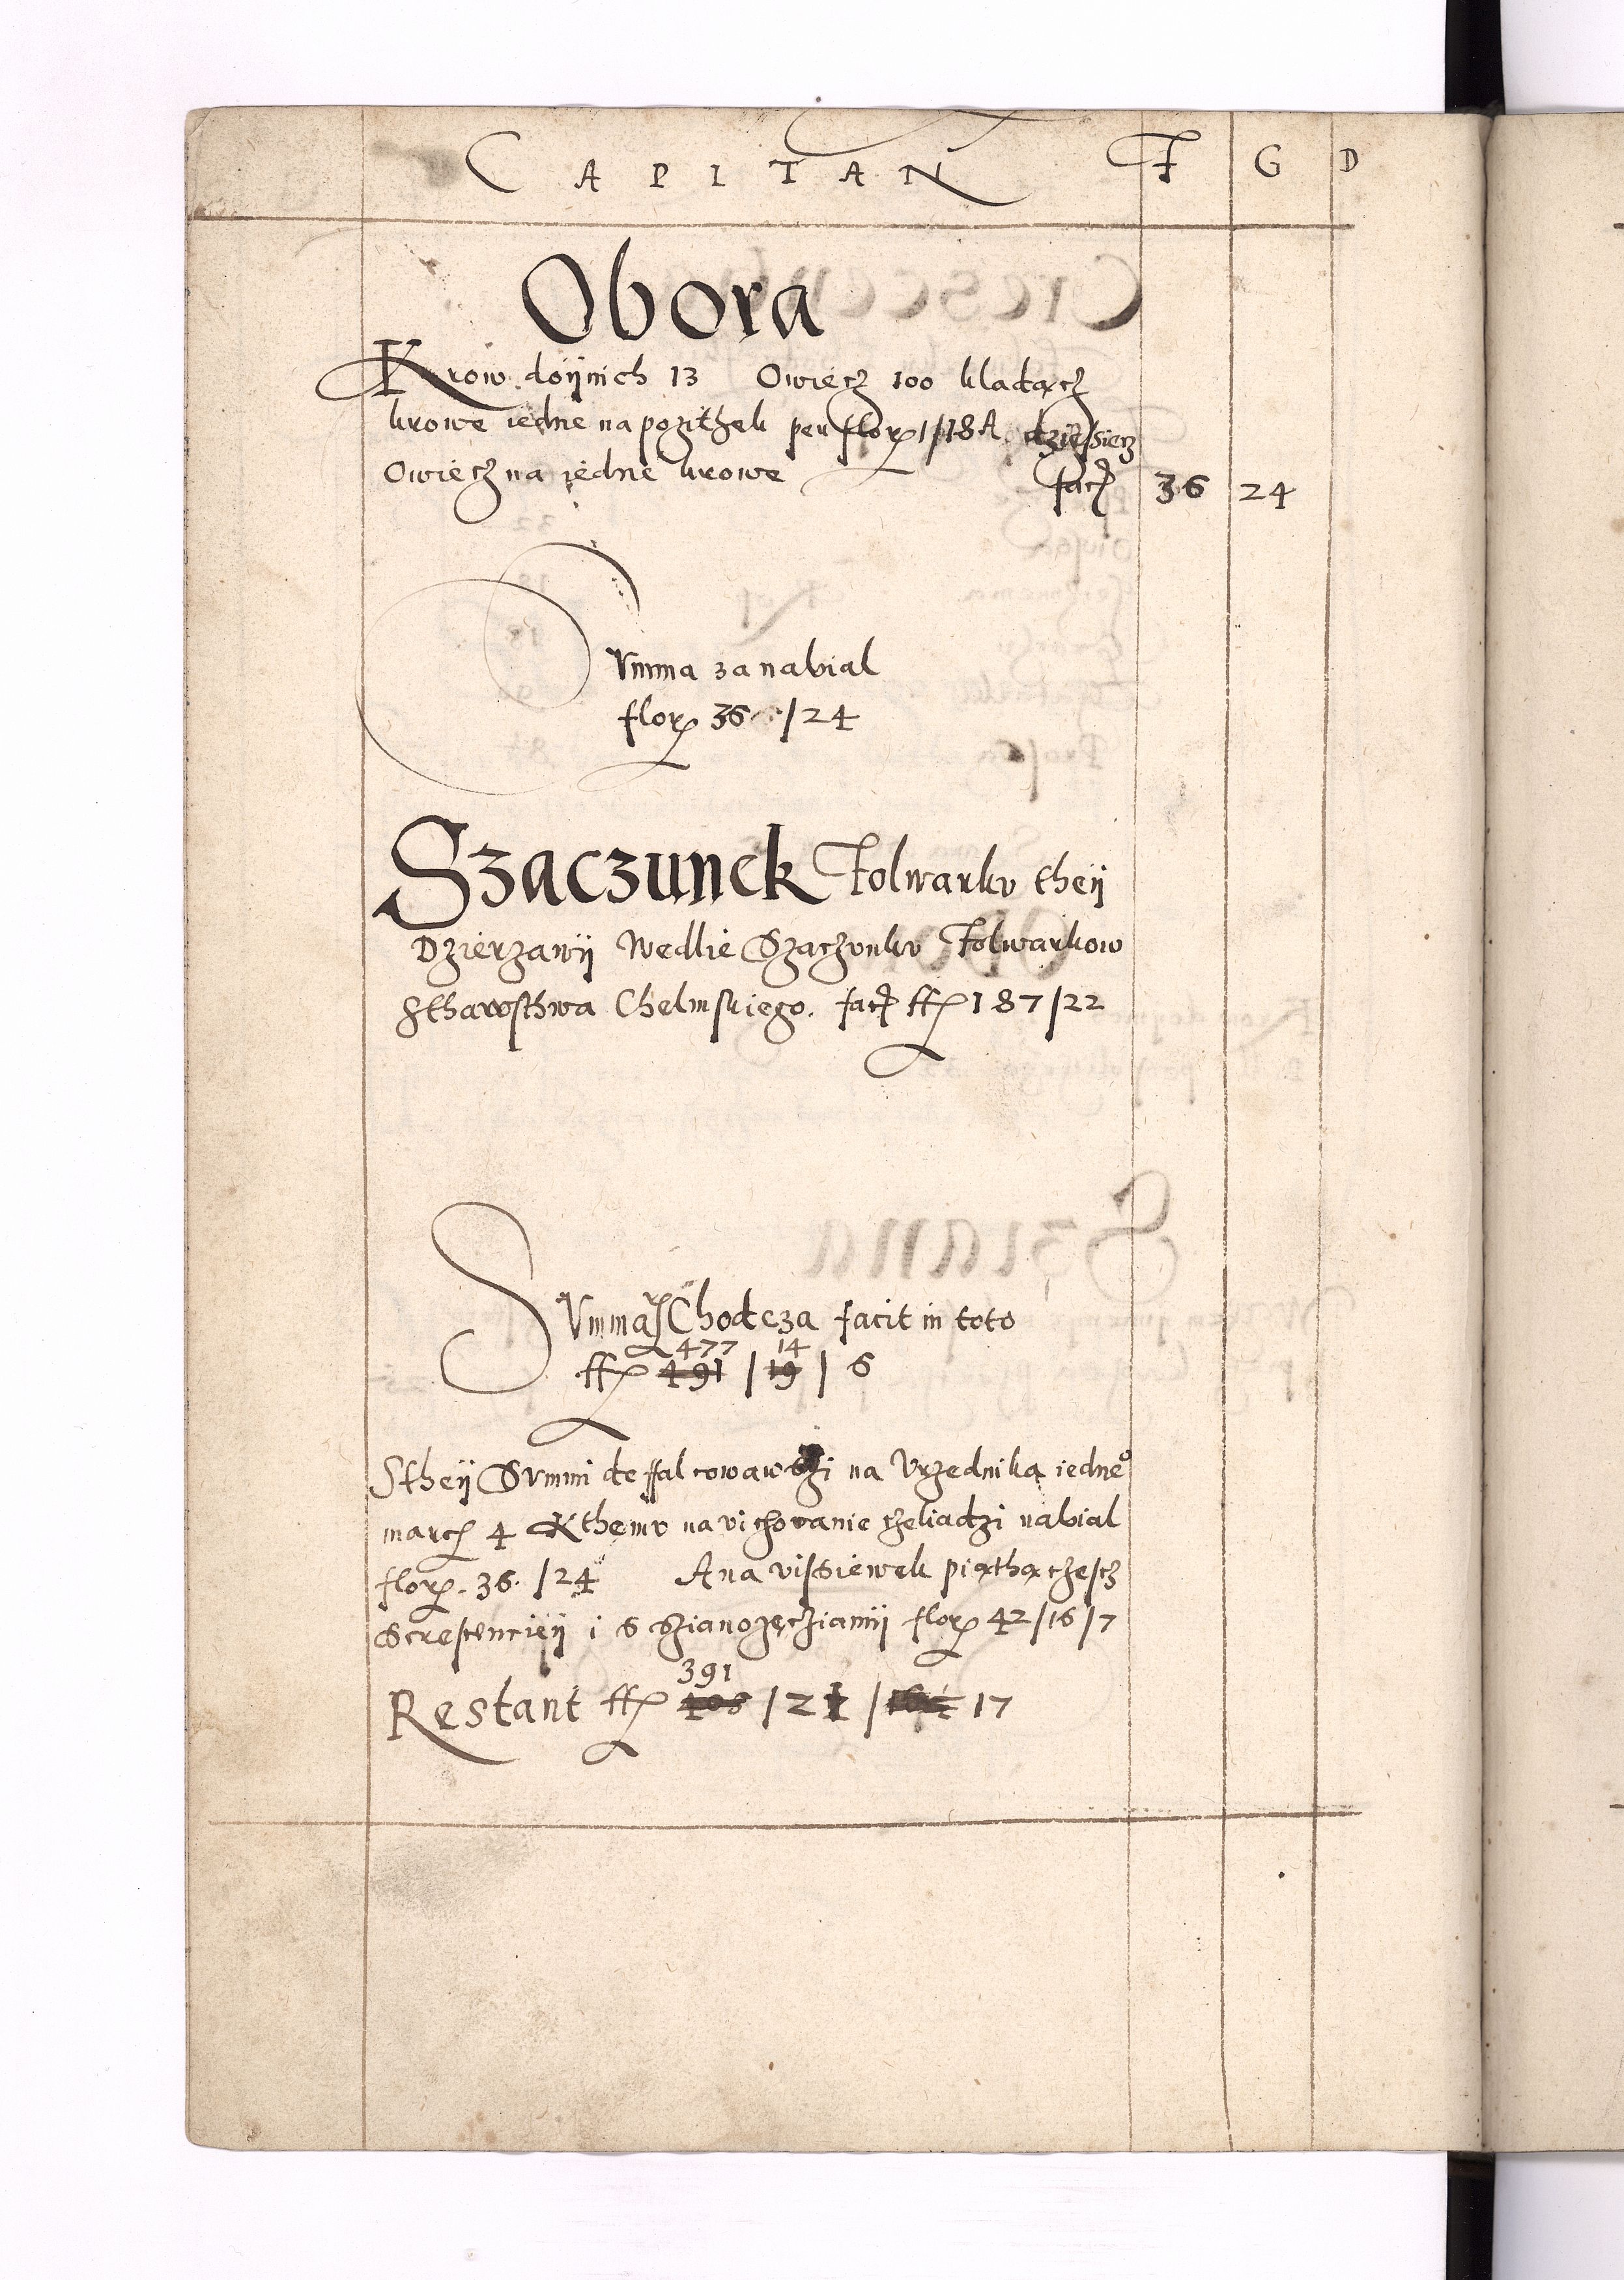 CAPITAN F G D
Obora
Krow doijnich 13 Owiecz 100 kladącz
krowe iedne na pozithek per flor 1/18 A dziesiecz
Owiecz na iedne krowe facit 36 24
Summa za nabial
flor 36 /24
Szaczunek Folwarku theij
Dzierzawij Wedlie Szaczunku Folwarkow
Stharosthwa Chelmskiego. facit ff 187/22
Summa Chodcza facit in toto
477 14
ff 491 / 19 / 6
Stheij Summi deffalcowawszi na Vrzednika iedne°
march 4 K themu na vichovanie czeliadzi nabial
flor. 36. /24 A na vissiewek piątha czescz
Screscencijej i s szianozęcziamij flor 42/16/7
391
Restant ff 408 /21 / 17